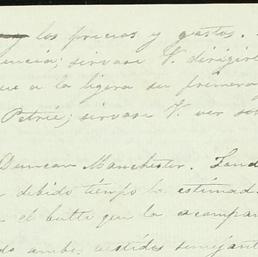 y los precios y gastos.
sirvase V. dirigirs
a la ligera su primera
Petrie; sirvase V. ver
Duncan Manchester. Fund
debido tiempo la estimad
el bulto que la acompañ
ambos vestidos semejant